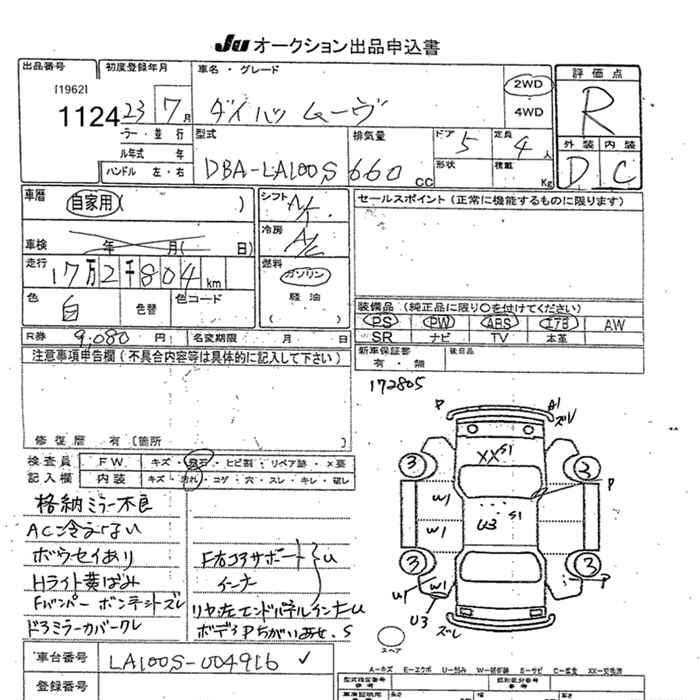 JU オークション出品申込書
出品番号 初度登録年月 車名・グレード 評価点
[1962]
1124 23 7月 ダイハツ ムーヴ 2WD 4WD R
カラー・並行 型式 排気量 ドア 定員 外装 内装
ル年式 年 DBA-LA100S 660 CC 5 4人 D C
ハンドル 左・右 形状 積載 Kg
車歴 自家用( ) シフト A/T セールスポイント(正常に機能するものに限ります)
車検 年 月( 日) 冷房 A/C
走行 17万2千804km 燃料 ガソリン
軽油
( )
色 白 色替 色コード 装備品(純正品に限り○を付けてください)
PS PW ABS エアB AW
R券 9,080円 名変期限 月 日 SR ナビ TV 本革
注意事項申告欄(不具合内容等は具体的に記入して下さい) 新車保証書 有・無 後日品
172805
修復歴 有〔箇所
検査員 FW キズ・飛石・ヒビ割・リペア跡・×要
記入欄 内装 キズ・汚れ・コゲ・穴・スレ・キレ・破レ
格納ミラー不良
ACひえない
ボウセイあり F右コアサポート
Hライト黄ばみ インナー U
Fバンパー ボンネットズレ リヤ左エンドパネルインナーU
ドアミラーカバーワレ ボディPちがいあせ、S
P A1 ズレ
XX S1
3 3 P
W1 U3 S1
W1
3 3
U1 W1 P
U3 ズレ
スペア
車台番号 LA100S-0049216 ✓
A-キズ E-エクボ U-凹み W-波 S-サビ C-腐食 XX-交換済
登録番号 型式指定番号 類別区分番号
長さ 幅 高さ